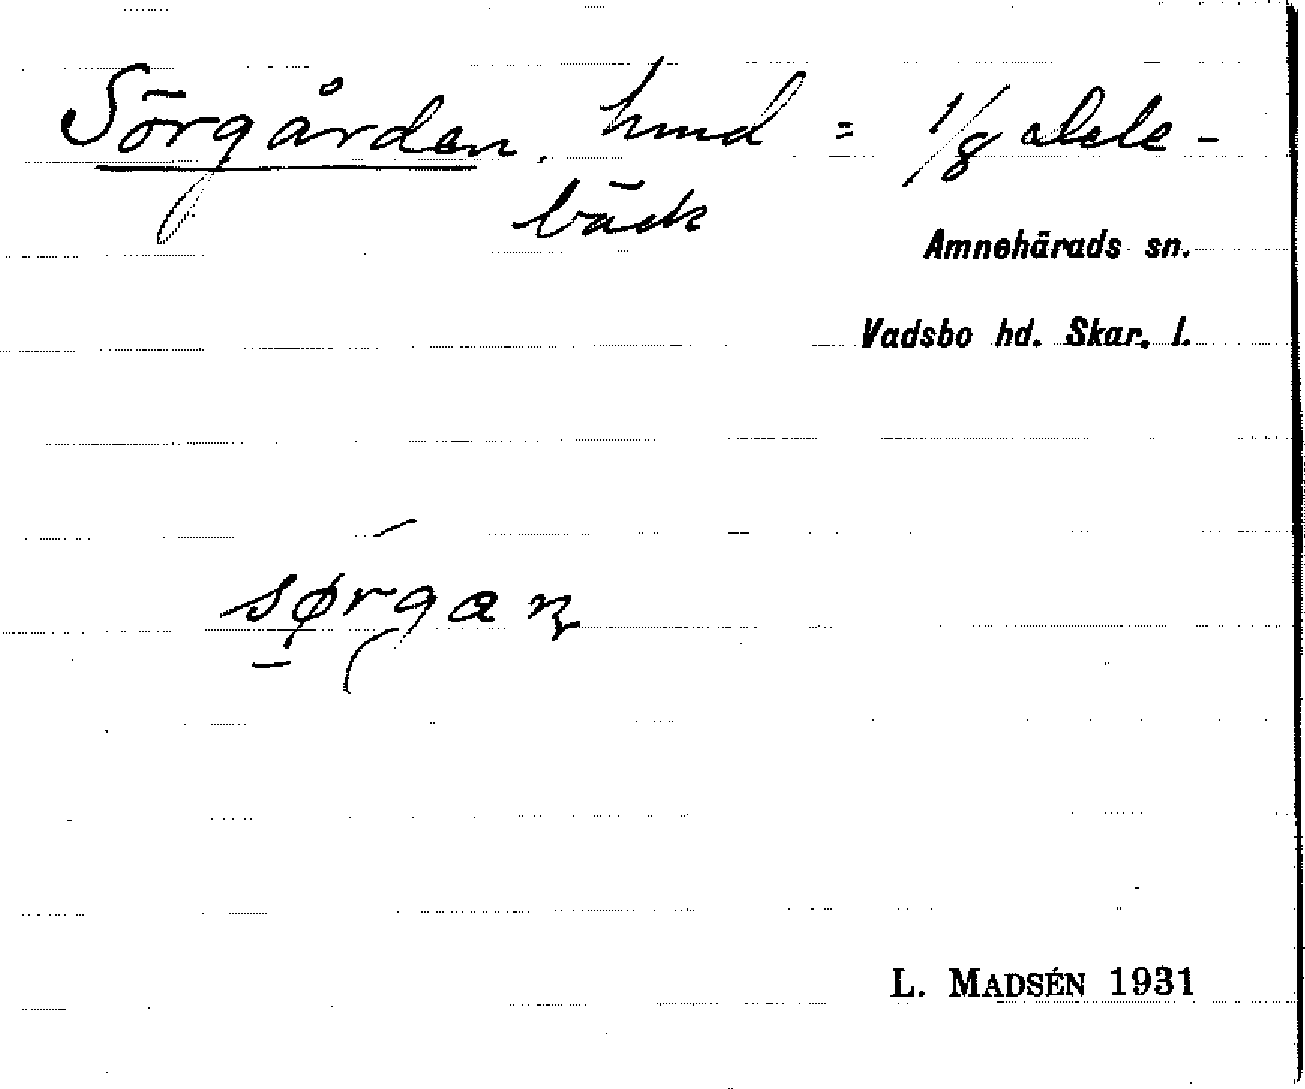 Sörgården. hmd = 1/8 Dele-
bäck
Amnehärads sn.
Vadsbo hd. Skar. l.
sørgaɳ
L. MADSÉN 1931